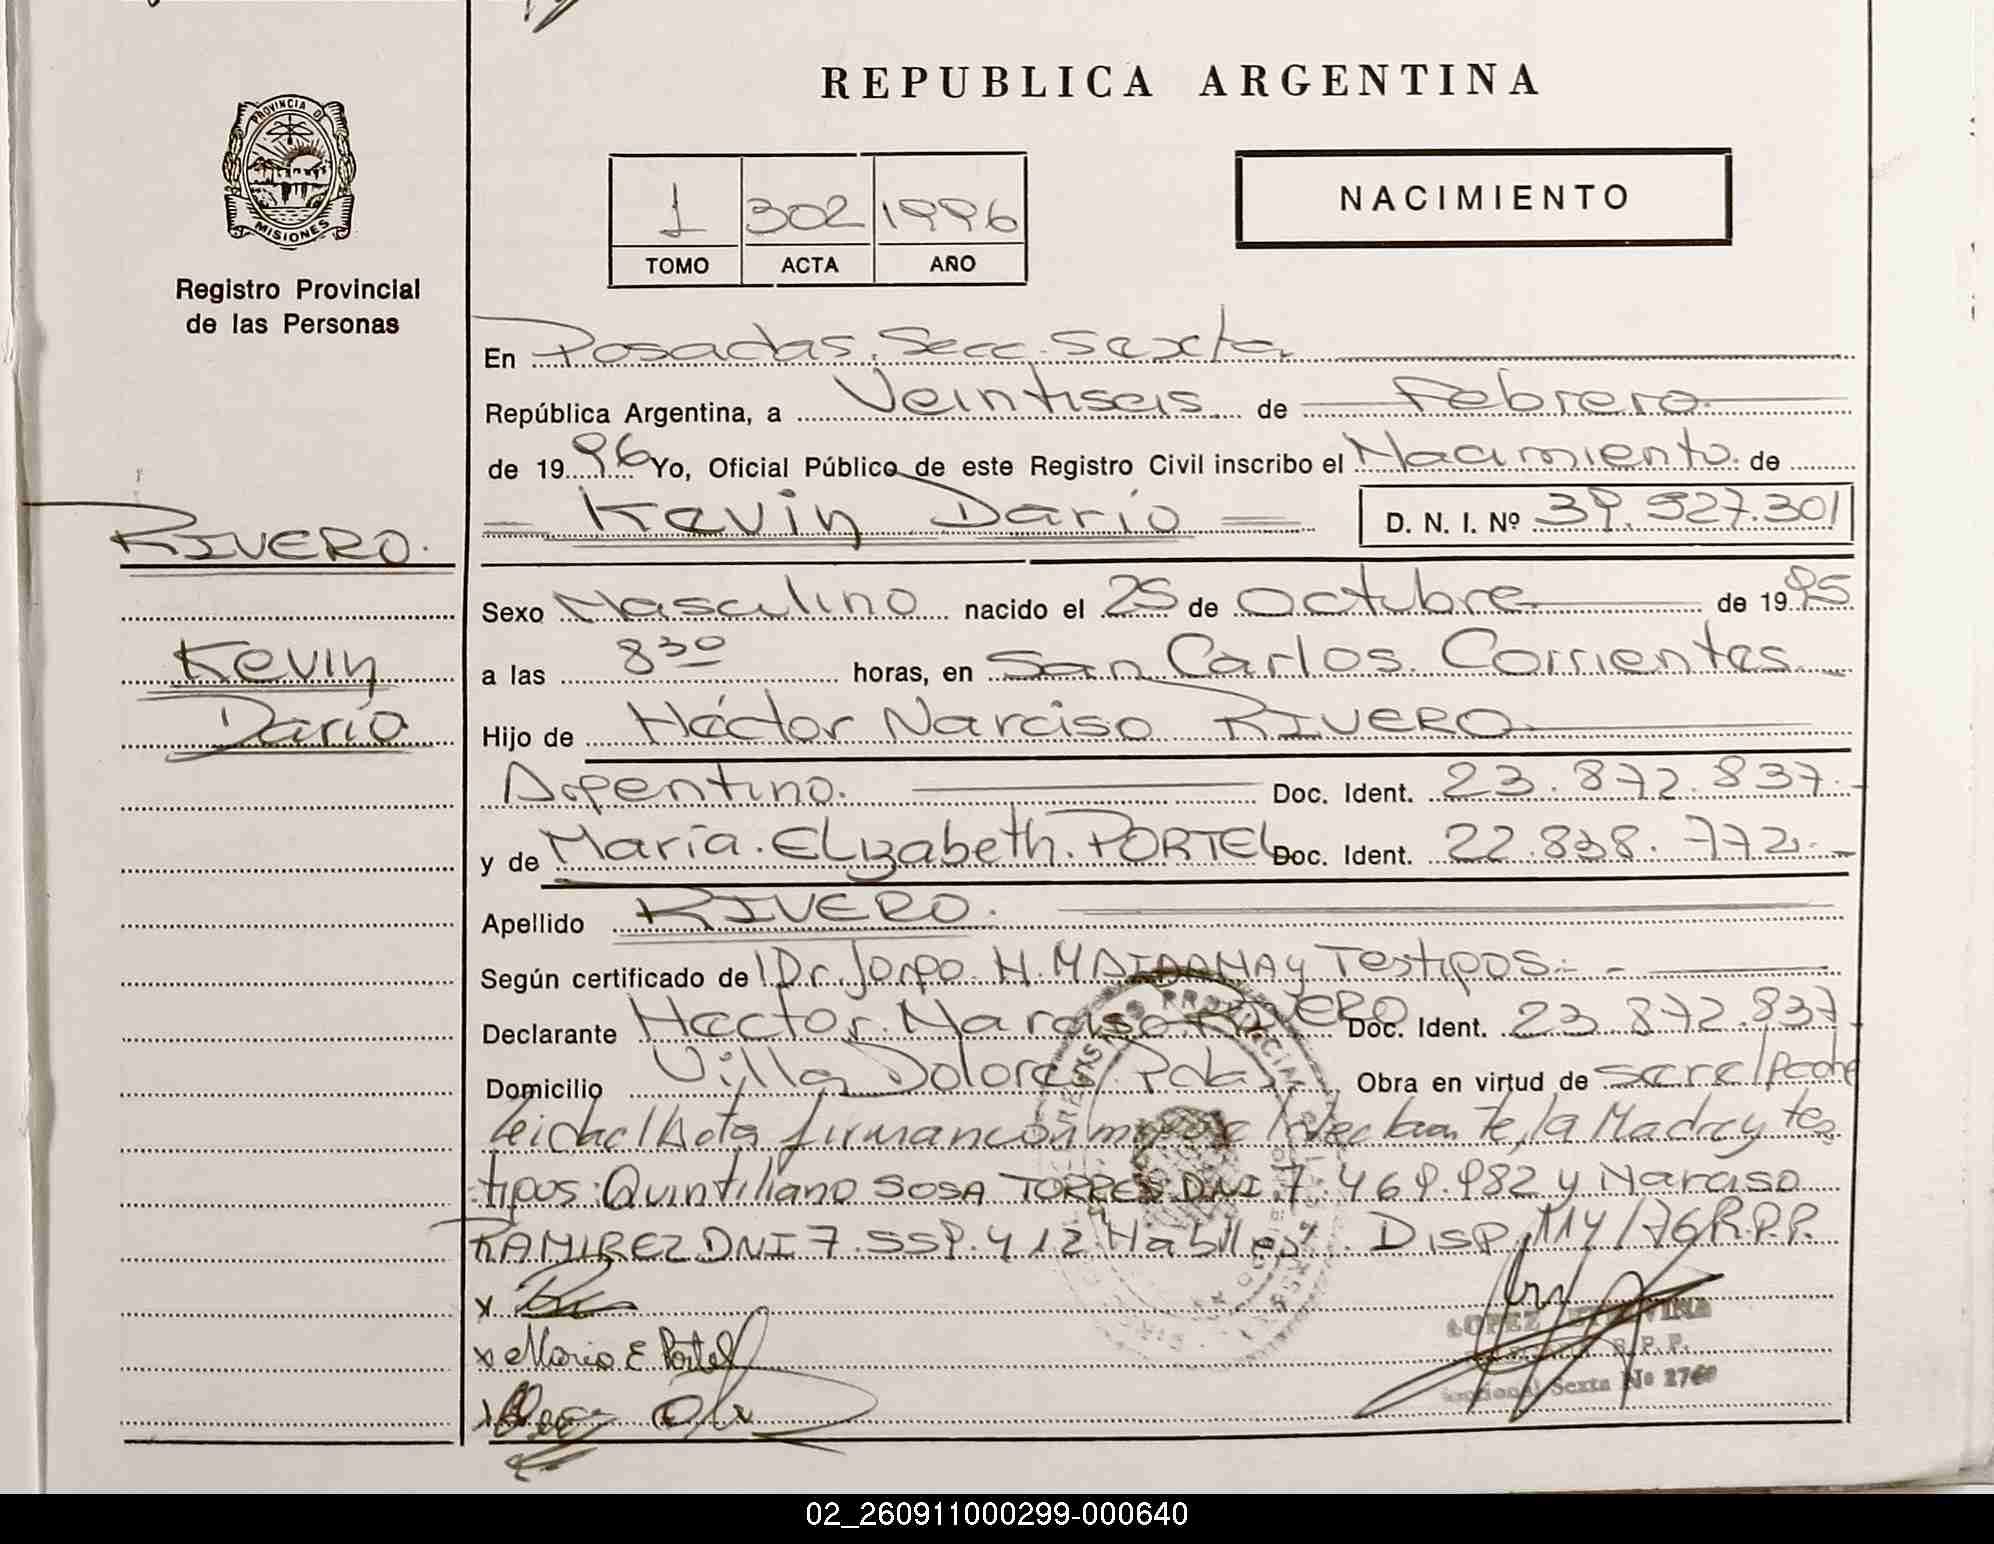 REPUBLICA ARGENTINA
PROVINCIA DE
MISIONES
Registro Provincial
de las Personas
1 302 1996
TOMO ACTA AÑO
NACIMIENTO
En Posadas. Secc. Sexta
República Argentina, a Veintiseis de Febrero.
de 19 96 Yo, Oficial Público de este Registro Civil inscribo el Nacimiento. de
Kevin Dario D. N. I. Nº 39.527.301
RIVERO.
Kevin
Dario
Sexo Masculino nacido el 25 de Octubre de 19 95
a las 8 30 horas, en San Carlos. Corrientes
Hijo de Héctor Narciso RIVERO
Argentino. Doc. Ident. 23.872.837.-
y de María. ELizabeth. PORTEL Doc. Ident. 22.838.772.-
Apellido RIVERO.
Según certificado de Dr. Jorge H. y Testigos.-
Declarante Hector. Narciso RIVERO Doc. Ident. 23.872.837
Domicilio Villa Dolores Obra en virtud de
Leida Acta firman la Madre y tes
tigos: Quintiliano SOSA TORRES DNI 7.469.982 y Narciso
RAMIREZ DNI 7.559.412 Habiles. Disp. 114/76 R.P.P.
x
x Maria E Portel
x
LOPEZ
R.P.P.
Seccional Sexta Nº 2760
02_260911000299-000640